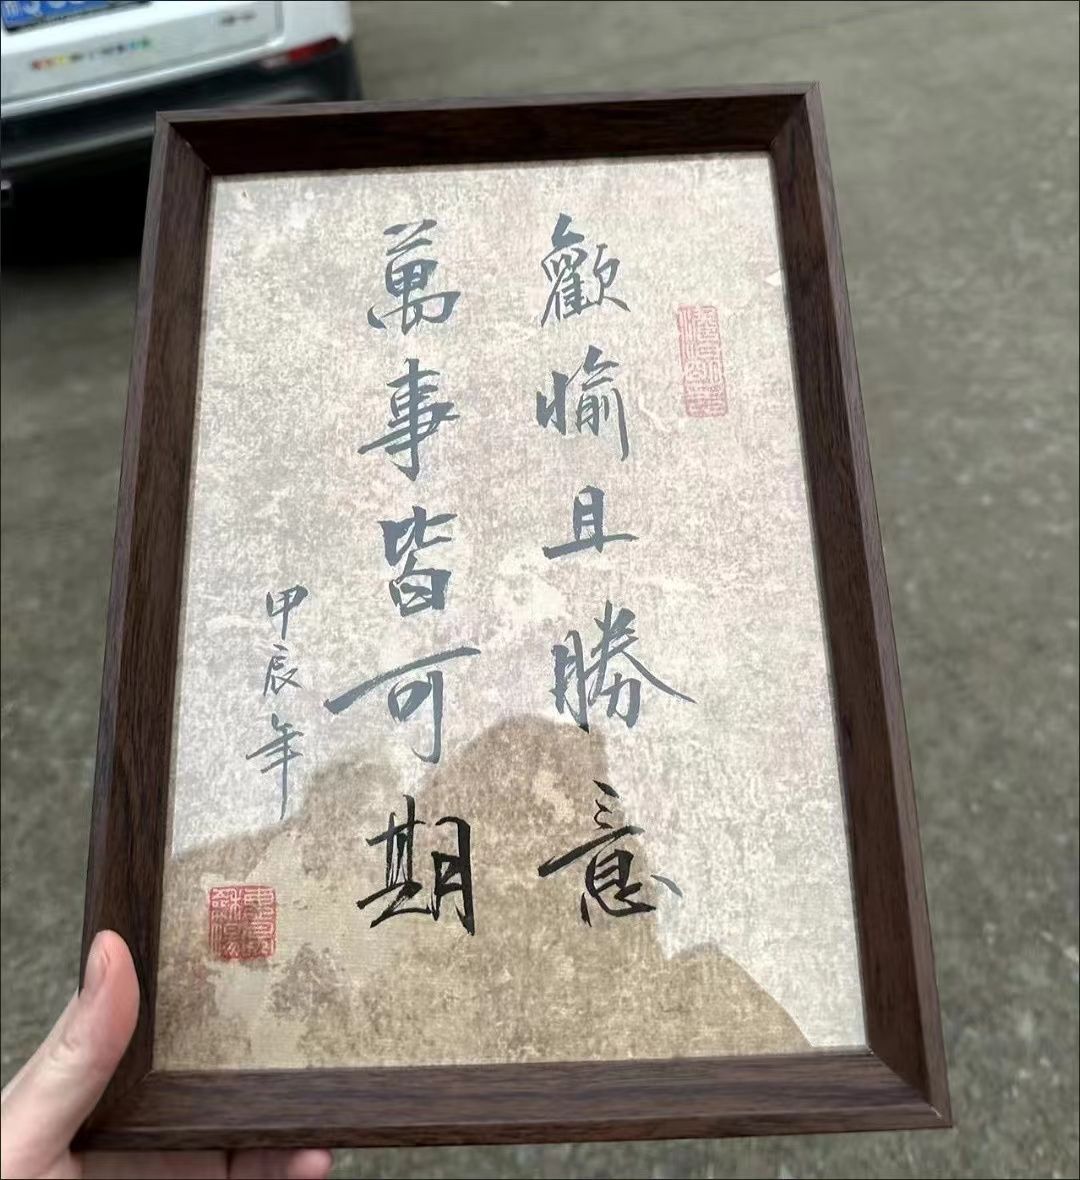 歡愉且勝意
萬事皆可期
甲辰年